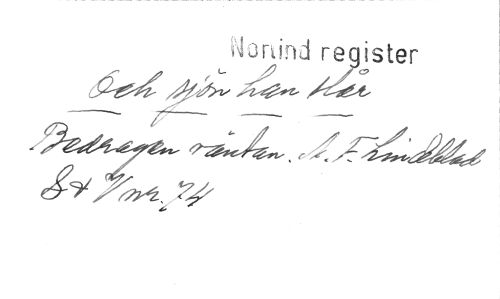 Norlind register
Och sjön han slår
Bedragen väntan. A. F. Lindblad
S + V nr. 74